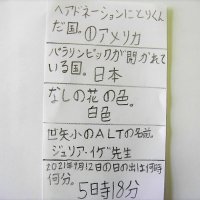 ヘアドネーションにとりくん
だ国。①アメリカ
パラリンピックが開かれて
いる国。日本
なしの花の色。
白色
世矢小のALTの名前。
ジュリア・イゲ先生
2021年9月12日の日の出は何時
何分。
5時18分